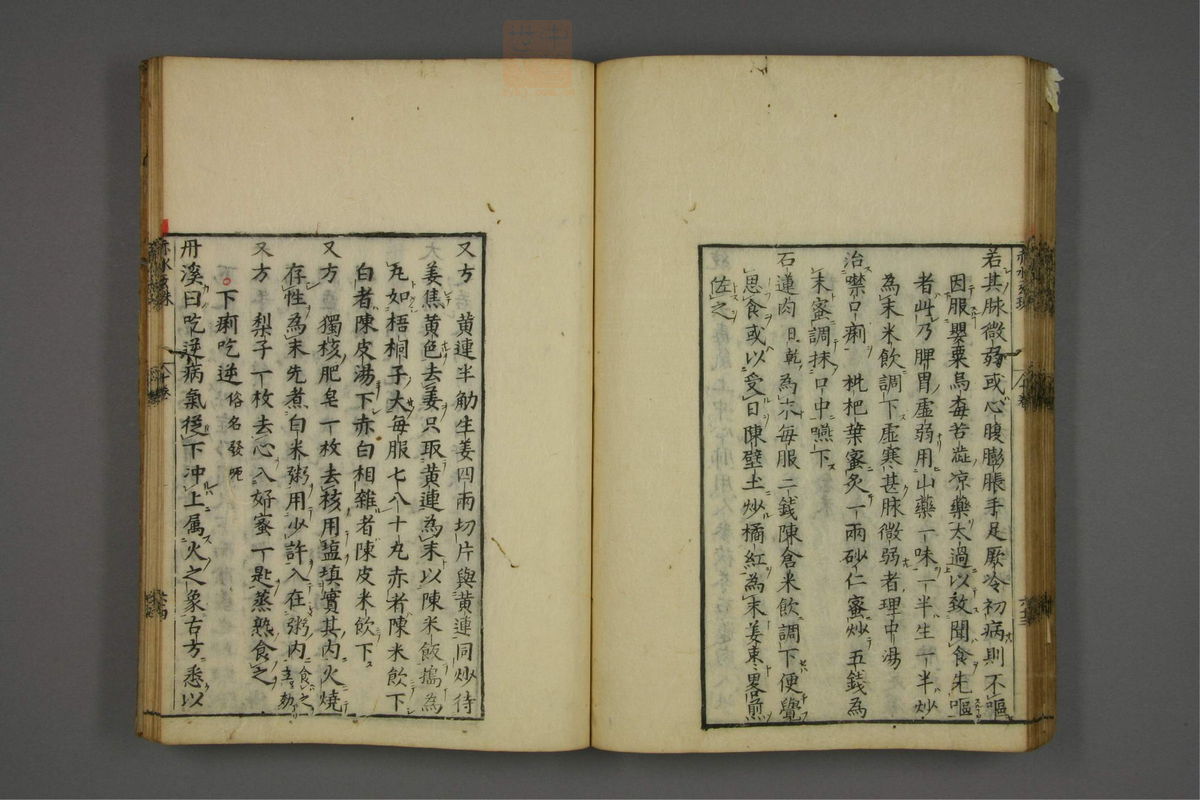 若其脉微弱或心腹膨脹手足厥冷初病則不嘔
因服罌粟烏梅苦澁凉藥太過以致聞食先嘔
者此乃脾胃虛弱用山藥一味一半生一半炒
為末米飲調下虛寒甚脉微弱者理中湯
治噤口痢 枇杷葉蜜炙一兩砂仁蜜炒五錢為
末蜜調抹口中嚥下
石蓮肉日乾為末每服二錢陳倉米飲調下便覺
思食或以受日陳壁土炒橘紅為末姜棗畧煎
佐之
又方 黄連半觔生姜四兩切片與黄連同炒待
姜焦黄色去姜只取黄連為末以陳米飯搗為
丸如梧桐子大每服七八十丸赤者陳米飲下
白者陳皮湯下赤白相雜者陳皮米飲下
又方 獨核肥皂一枚去核用塩填實其内火燒
存性為末先煮白米粥用少許入在粥内食之效
又方 梨子一枚去心入好蜜一匙蒸熟食之
下痢吃逆 俗名發呃
丹溪曰吃逆病氣從下冲上属火之象古方悉以
赤水玄珠